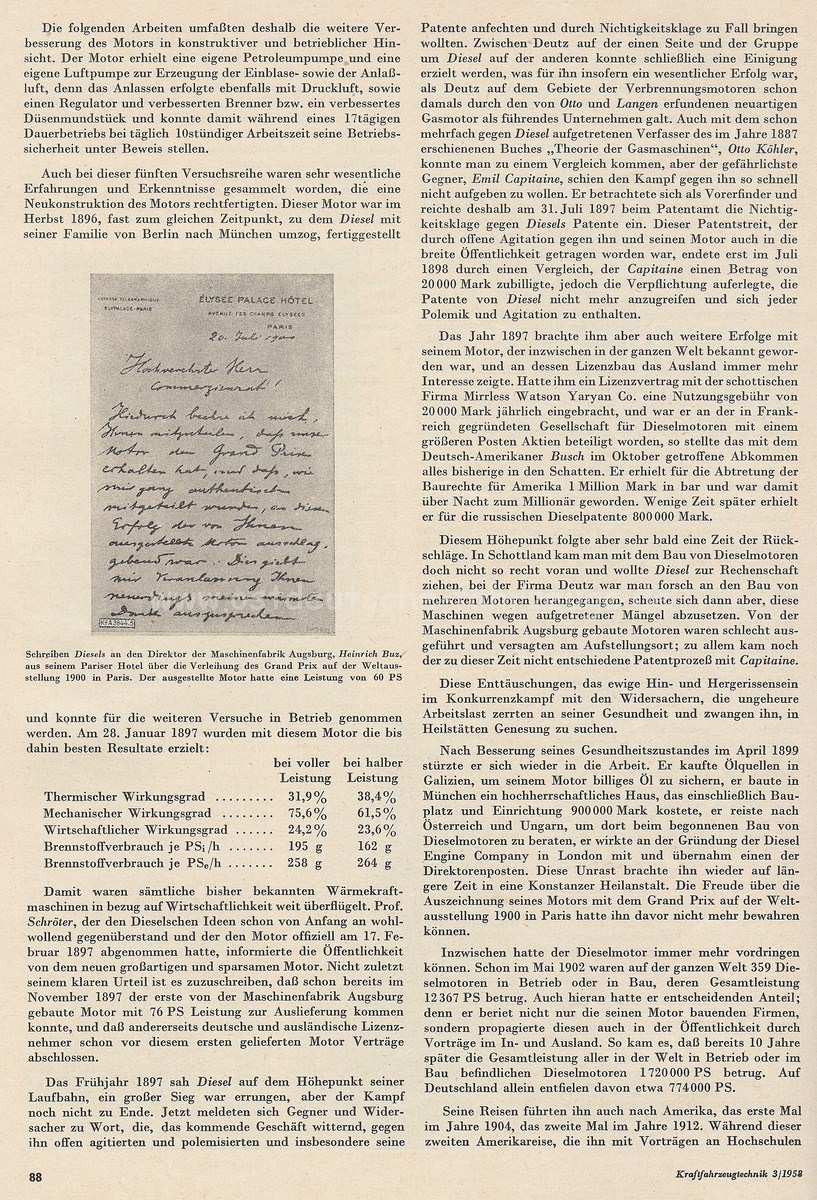 Die folgenden Arbeiten umfaßten deshalb die weitere Ver-
besserung des Motors in konstruktiver und betrieblicher Hin-
sicht. Der Motor erhielt eine eigene Petroleumpumpe und eine
eigene Luftpumpe zur Erzeugung der Einblase- sowie der Anlaß-
luft, denn das Anlassen erfolgte ebenfalls mit Druckluft, sowie
einen Regulator und verbesserten Brenner bzw. ein verbessertes
Düsenmundstück und konnte damit während eines 17tägigen
Dauerbetriebs bei täglich 10stündiger Arbeitszeit seine Betriebs-
sicherheit unter Beweis stellen.
Auch bei dieser fünften Versuchsreihe waren sehr wesentliche
Erfahrungen und Erkenntnisse gesammelt worden, die eine
Neukonstruktion des Motors rechtfertigten. Dieser Motor war im
Herbst 1896, fast zum gleichen Zeitpunkt, zu dem Diesel mit
seiner Familie von Berlin nach München umzog, fertiggestellt
ADRESSE TÉLÉGRAPHIQUE
ELYPALACE-PARIS
ÉLYSÉE PALACE HÔTEL
AVENUE DES CHAMPS ELYSÉES
PARIS
20. Juli 1900
Hochverehrter Herr
Commerzienrat!
Hiedurch beehre ich mich,
Ihnen mitzuteilen, daß unser
Motor den Grand Prix
erhalten hat, und daß, wie
mir ganz authentisch
mitgeteilt wurde, an diesem
Erfolg der von Ihnen
ausgestellte Motor ausschlag-
gebend war. Dies giebt
mir Veranlassung Ihnen
neuerdings meinen wärmsten
Dank auszusprechen
KfA3844.5
Schreiben Diesels an den Direktor der Maschinenfabrik Augsburg, Heinrich Buz,
aus seinem Pariser Hotel über die Verleihung des Grand Prix auf der Weltaus-
stellung 1900 in Paris. Der ausgestellte Motor hatte eine Leistung von 60 PS
und konnte für die weiteren Versuche in Betrieb genommen
werden. Am 28. Januar 1897 wurden mit diesem Motor die bis
dahin besten Resultate erzielt:
bei voller bei halber
Leistung Leistung
Thermischer Wirkungsgrad ......... 31,9% 38,4%
Mechanischer Wirkungsgrad ........ 75,6% 61,5%
Wirtschaftlicher Wirkungsgrad ...... 24,2% 23,6%
Brennstoffverbrauch je PSi/h ....... 195 g 162 g
Brennstoffverbrauch je PSe/h ....... 258 g 264 g
Damit waren sämtliche bisher bekannten Wärmekraft-
maschinen in bezug auf Wirtschaftlichkeit weit überflügelt. Prof.
Schröter, der den Dieselschen Ideen schon von Anfang an wohl-
wollend gegenüberstand und der den Motor offiziell am 17. Fe-
bruar 1897 abgenommen hatte, informierte die Öffentlichkeit
von dem neuen großartigen und sparsamen Motor. Nicht zuletzt
seinem klaren Urteil ist es zuzuschreiben, daß schon bereits im
November 1897 der erste von der Maschinenfabrik Augsburg
gebaute Motor mit 76 PS Leistung zur Auslieferung kommen
konnte, und daß andererseits deutsche und ausländische Lizenz-
nehmer schon vor diesem ersten gelieferten Motor Verträge
abschlossen.
Das Frühjahr 1897 sah Diesel auf dem Höhepunkt seiner
Laufbahn, ein großer Sieg war errungen, aber der Kampf
noch nicht zu Ende. Jetzt meldeten sich Gegner und Wider-
sacher zu Wort, die, das kommende Geschäft witternd, gegen
ihn offen agitierten und polemisierten und insbesondere seine
Patente anfechten und durch Nichtigkeitsklage zu Fall bringen
wollten. Zwischen Deutz auf der einen Seite und der Gruppe
um Diesel auf der anderen konnte schließlich eine Einigung
erzielt werden, was für ihn insofern ein wesentlicher Erfolg war,
als Deutz auf dem Gebiete der Verbrennungsmotoren schon
damals durch den von Otto und Langen erfundenen neuartigen
Gasmotor als führendes Unternehmen galt. Auch mit dem schon
mehrfach gegen Diesel aufgetretenen Verfasser des im Jahre 1887
erschienenen Buches „Theorie der Gasmaschinen“, Otto Köhler,
konnte man zu einem Vergleich kommen, aber der gefährlichste
Gegner, Emil Capitaine, schien den Kampf gegen ihn so schnell
nicht aufgeben zu wollen. Er betrachtete sich als Vorerfinder und
reichte deshalb am 31. Juli 1897 beim Patentamt die Nichtig-
keitsklage gegen Diesels Patente ein. Dieser Patentstreit, der
durch offene Agitation gegen ihn und seinen Motor auch in die
breite Öffentlichkeit getragen worden war, endete erst im Juli
1898 durch einen Vergleich, der Capitaine einen Betrag von
20 000 Mark zubilligte, jedoch die Verpflichtung auferlegte, die
Patente von Diesel nicht mehr anzugreifen und sich jeder
Polemik und Agitation zu enthalten.
Das Jahr 1897 brachte ihm aber auch weitere Erfolge mit
seinem Motor, der inzwischen in der ganzen Welt bekannt gewor-
den war, und an dessen Lizenzbau das Ausland immer mehr
Interesse zeigte. Hatte ihm ein Lizenzvertrag mit der schottischen
Firma Mirrless Watson Yaryan Co. eine Nutzungsgebühr von
20 000 Mark jährlich eingebracht, und war er an der in Frank-
reich gegründeten Gesellschaft für Dieselmotoren mit einem
größeren Posten Aktien beteiligt worden, so stellte das mit dem
Deutsch-Amerikaner Busch im Oktober getroffene Abkommen
alles bisherige in den Schatten. Er erhielt für die Abtretung der
Baurechte für Amerika 1 Million Mark in bar und war damit
über Nacht zum Millionär geworden. Wenige Zeit später erhielt
er für die russischen Dieselpatente 800 000 Mark.
Diesem Höhepunkt folgte aber sehr bald eine Zeit der Rück-
schläge. In Schottland kam man mit dem Bau von Dieselmotoren
doch nicht so recht voran und wollte Diesel zur Rechenschaft
ziehen, bei der Firma Deutz war man forsch an den Bau von
mehreren Motoren herangegangen, scheute sich dann aber, diese
Maschinen wegen aufgetretener Mängel abzusetzen. Von der
Maschinenfabrik Augsburg gebaute Motoren waren schlecht aus-
geführt und versagten am Aufstellungsort; zu allem kam noch
der zu dieser Zeit nicht entschiedene Patentprozeß mit Capitaine.
Diese Enttäuschungen, das ewige Hin- und Hergerissensein
im Konkurrenzkampf mit den Widersachern, die ungeheure
Arbeitslast zerrten an seiner Gesundheit und zwangen ihn, in
Heilstätten Genesung zu suchen.
Nach Besserung seines Gesundheitszustandes im April 1899
stürzte er sich wieder in die Arbeit. Er kaufte Ölquellen in
Galizien, um seinem Motor billiges Öl zu sichern, er baute in
München ein hochherrschaftliches Haus, das einschließlich Bau-
platz und Einrichtung 900 000 Mark kostete, er reiste nach
Österreich und Ungarn, um dort beim begonnenen Bau von
Dieselmotoren zu beraten, er wirkte an der Gründung der Diesel
Engine Company in London mit und übernahm einen der
Direktorenposten. Diese Unrast brachte ihn wieder auf län-
gere Zeit in eine Konstanzer Heilanstalt. Die Freude über die
Auszeichnung seines Motors mit dem Grand Prix auf der Welt-
ausstellung 1900 in Paris hatte ihn davor nicht mehr bewahren
können.
Inzwischen hatte der Dieselmotor immer mehr vordringen
können. Schon im Mai 1902 waren auf der ganzen Welt 359 Die-
selmotoren in Betrieb oder in Bau, deren Gesamtleistung
12 367 PS betrug. Auch hieran hatte er entscheidenden Anteil;
denn er beriet nicht nur die seinen Motor bauenden Firmen,
sondern propagierte diesen auch in der Öffentlichkeit durch
Vorträge im In- und Ausland. So kam es, daß bereits 10 Jahre
später die Gesamtleistung aller in der Welt in Betrieb oder im
Bau befindlichen Dieselmotoren 1 720 000 PS betrug. Auf
Deutschland allein entfielen davon etwa 774 000 PS.
Seine Reisen führten ihn auch nach Amerika, das erste Mal
im Jahre 1904, das zweite Mal im Jahre 1912. Während dieser
zweiten Amerikareise, die ihn mit Vorträgen an Hochschulen
88
Kraftfahrzeugtechnik 3/1958